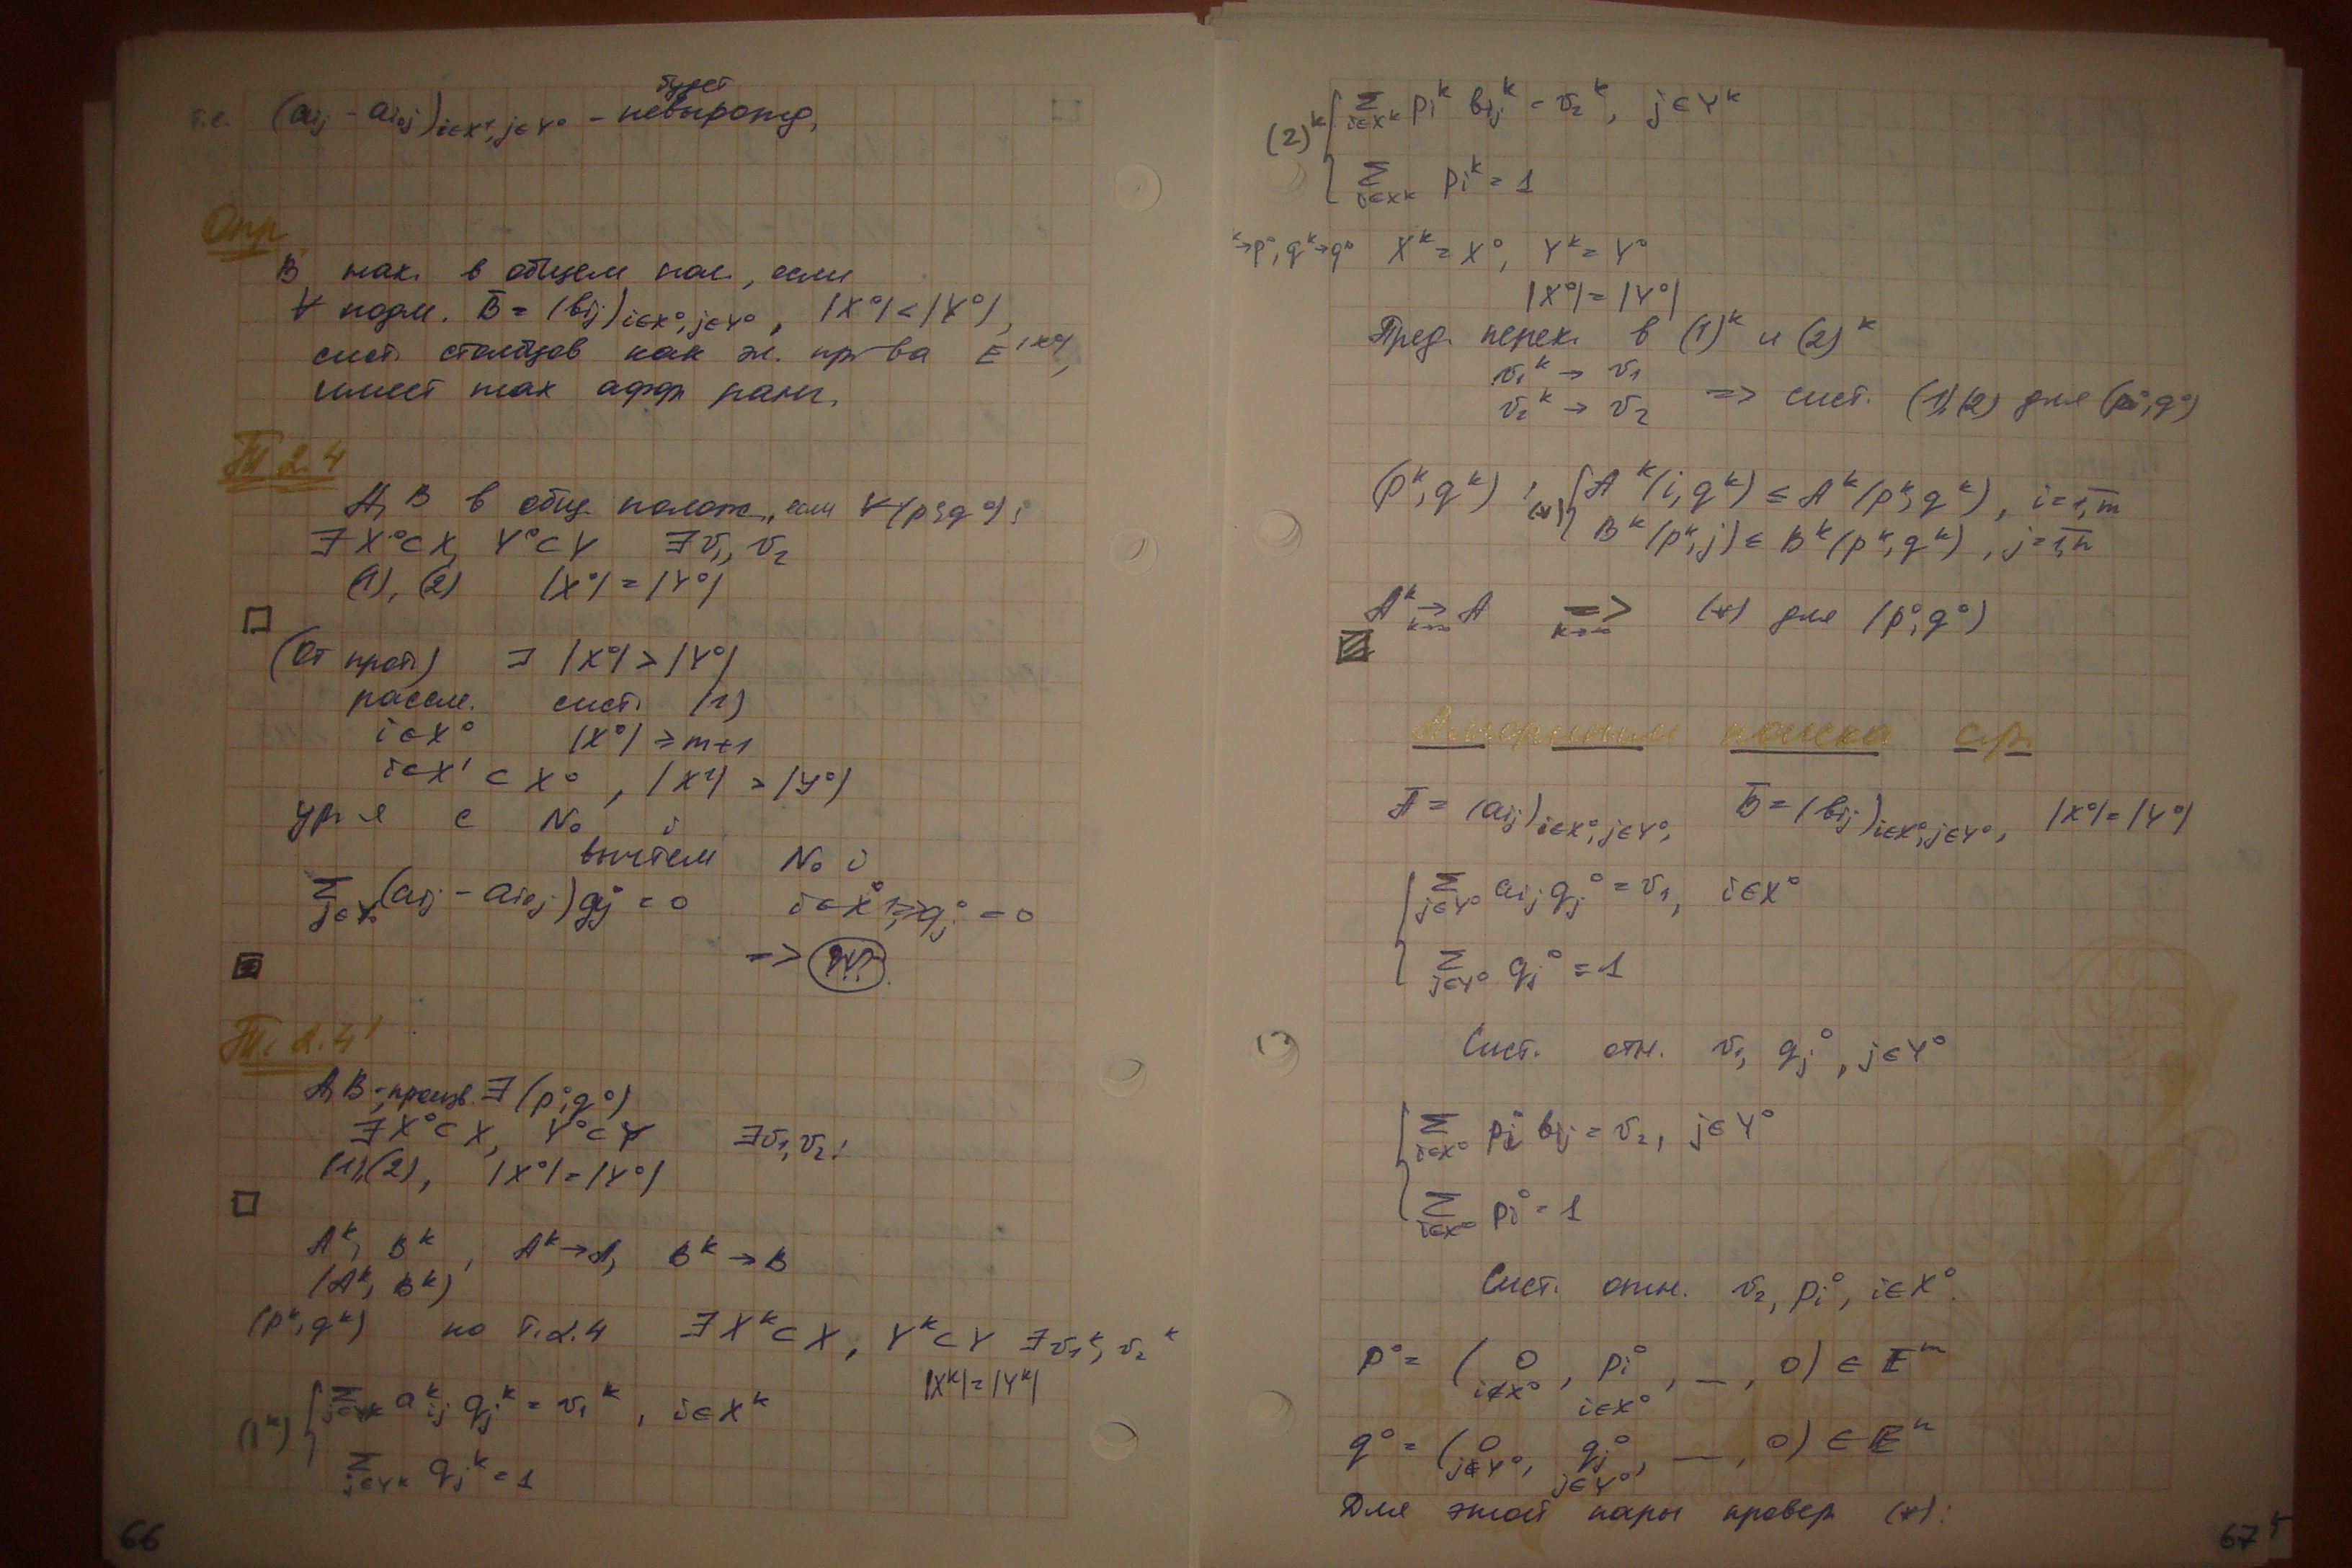 т.е. (aij - ai₀j)i∈X¹, j∈Y⁰ - невырожд,
будет
Опр
B нах. в общем пол., если
∀ подм. B̄ = (bij)i∈X⁰, j∈Y⁰, |X⁰| < |Y⁰|,
сист. столбцов как эл. пр-ва E^|X⁰|,
имеет max афф ранг.
Т 2.4
A, B в общ. полож., если ∀(p⁰, q⁰):
∃X⁰⊂X, Y⁰⊂Y ∃v₁, v₂
(1), (2) |X⁰| = |Y⁰|
(От прот.) ∃ |X⁰| > |Y⁰|
рассм. сист. (1)
i∈X⁰ |X⁰| ≥ m+1
i∈X¹ ⊂ X⁰, |X¹| = |Y⁰|
ур-я с № i
вычтем № i
Σj∈Y⁰ (aij - ai₀j) qj⁰ = 0 i∈X¹ => qj⁰ = 0
=>
Т. 2.4'
A, B - произв. ∃(p⁰, q⁰)
∃X⁰⊂X, Y⁰⊂Y ∃v₁, v₂:
(1), (2), |X⁰| = |Y⁰|
Aᵏ, Bᵏ, Aᵏ → A, Bᵏ → B
(Aᵏ, Bᵏ)
(pᵏ, qᵏ) по т. 2.4 ∃Xᵏ⊂X, Yᵏ⊂Y ∃v₁ᵏ, v₂ᵏ
|Xᵏ| = |Yᵏ|
(1ᵏ) { Σj∈Yᵏ aᵏij qjᵏ = v₁ᵏ, i∈Xᵏ
Σj∈Yᵏ qjᵏ = 1
66
(2)ᵏ { Σi∈Xᵏ piᵏ bijᵏ = v₂ᵏ, j∈Yᵏ
Σi∈Xᵏ piᵏ = 1
ᵏ→p⁰, qᵏ→q⁰ Xᵏ = X⁰, Yᵏ = Y⁰
|X⁰| = |Y⁰|
Пред. перех. в (1)ᵏ и (2)ᵏ
v₁ᵏ → v₁
v₂ᵏ → v₂ => сист. (1), (2) для (p⁰, q⁰)
(pᵏ, qᵏ): (*) { Aᵏ(i, qᵏ) ≤ Aᵏ(pᵏ, qᵏ), i = 1,m
Bᵏ(pᵏ, j) ≤ Bᵏ(pᵏ, qᵏ), j = 1,n
Aᵏ → A k→∞ => k→∞ (*) для (p⁰, q⁰)
Алгоритм поиска с.р.
Ā = (aij)i∈X⁰, j∈Y⁰, B̄ = (bij)i∈X⁰, j∈Y⁰, |X⁰| = |Y⁰|
{ Σj∈Y⁰ aij qj⁰ = v₁, i∈X⁰
Σj∈Y⁰ qj⁰ = 1
Сист. отн. v₁, qj⁰, j∈Y⁰
{ Σi∈X⁰ pi⁰ bij = v₂, j∈Y⁰
Σi∈X⁰ pi⁰ = 1
Сист. отн. v₂, pi⁰, i∈X⁰.
p⁰ = (0, pi⁰, ..., 0) ∈ Eᵐ
i∉X⁰ i∈X⁰
q⁰ = (0, qj⁰, ..., 0) ∈ Eⁿ
j∉Y⁰, j∈Y⁰
Для этой пары провер (*):
67